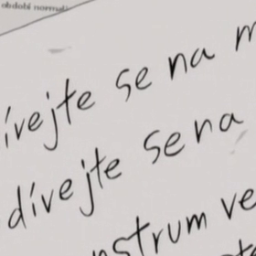 období normali
ívejte se na m
dívejte se na
nstrum ve